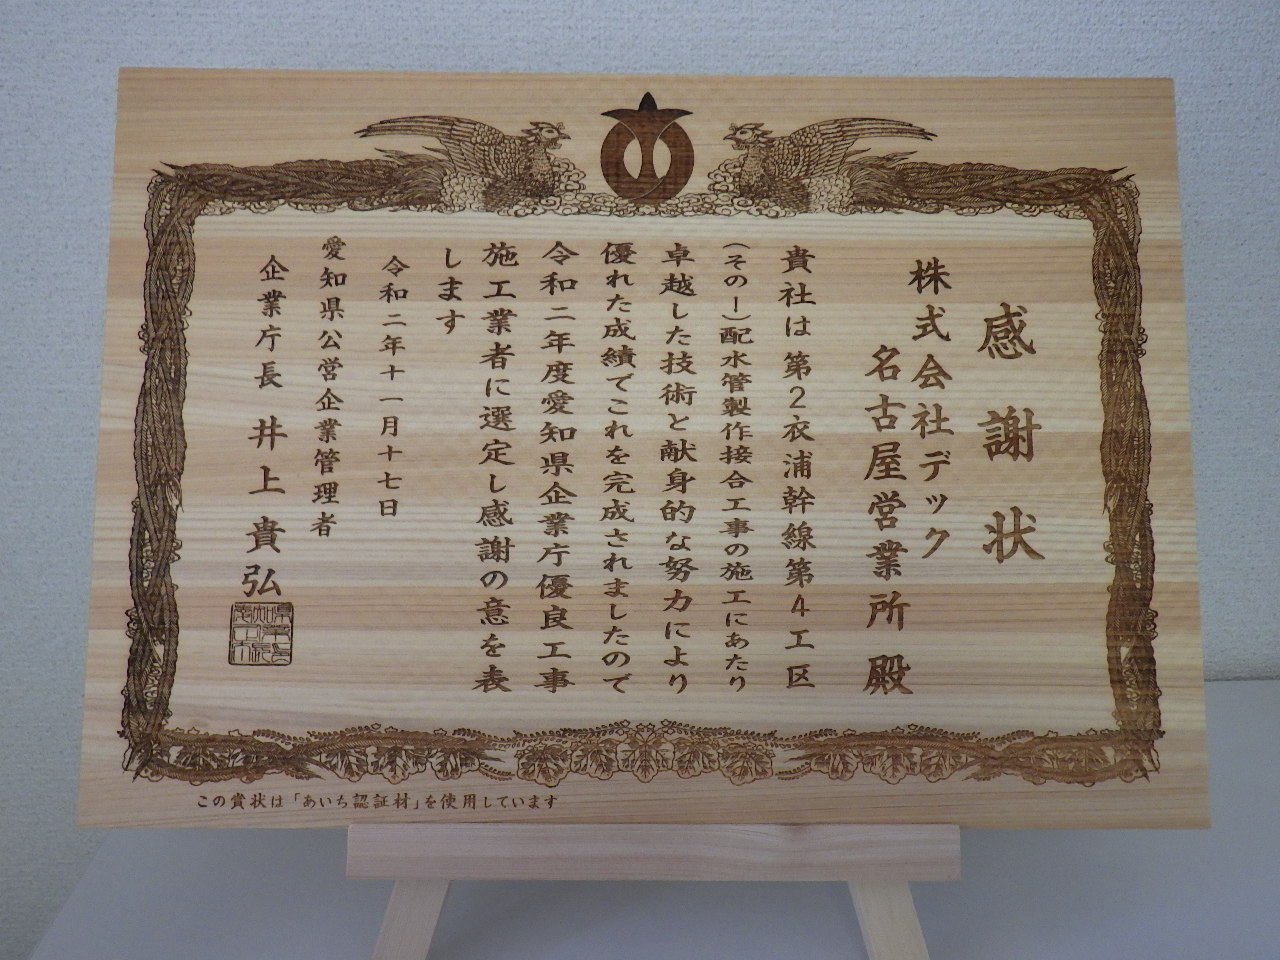 感謝状
株式会社デック
名古屋営業所 殿
貴社は第2衣浦幹線第4工区
(その一)配水管製作接合工事の施工にあたり
卓越した技術と献身的な努力により
優れた成績でこれを完成されましたので
令和二年度愛知県企業庁優良工事
施工業者に選定し感謝の意を表
します
令和二年十一月十七日
愛知県公営企業管理者
企業庁長 井上貴弘
この賞状は「あいち認証材」を使用しています